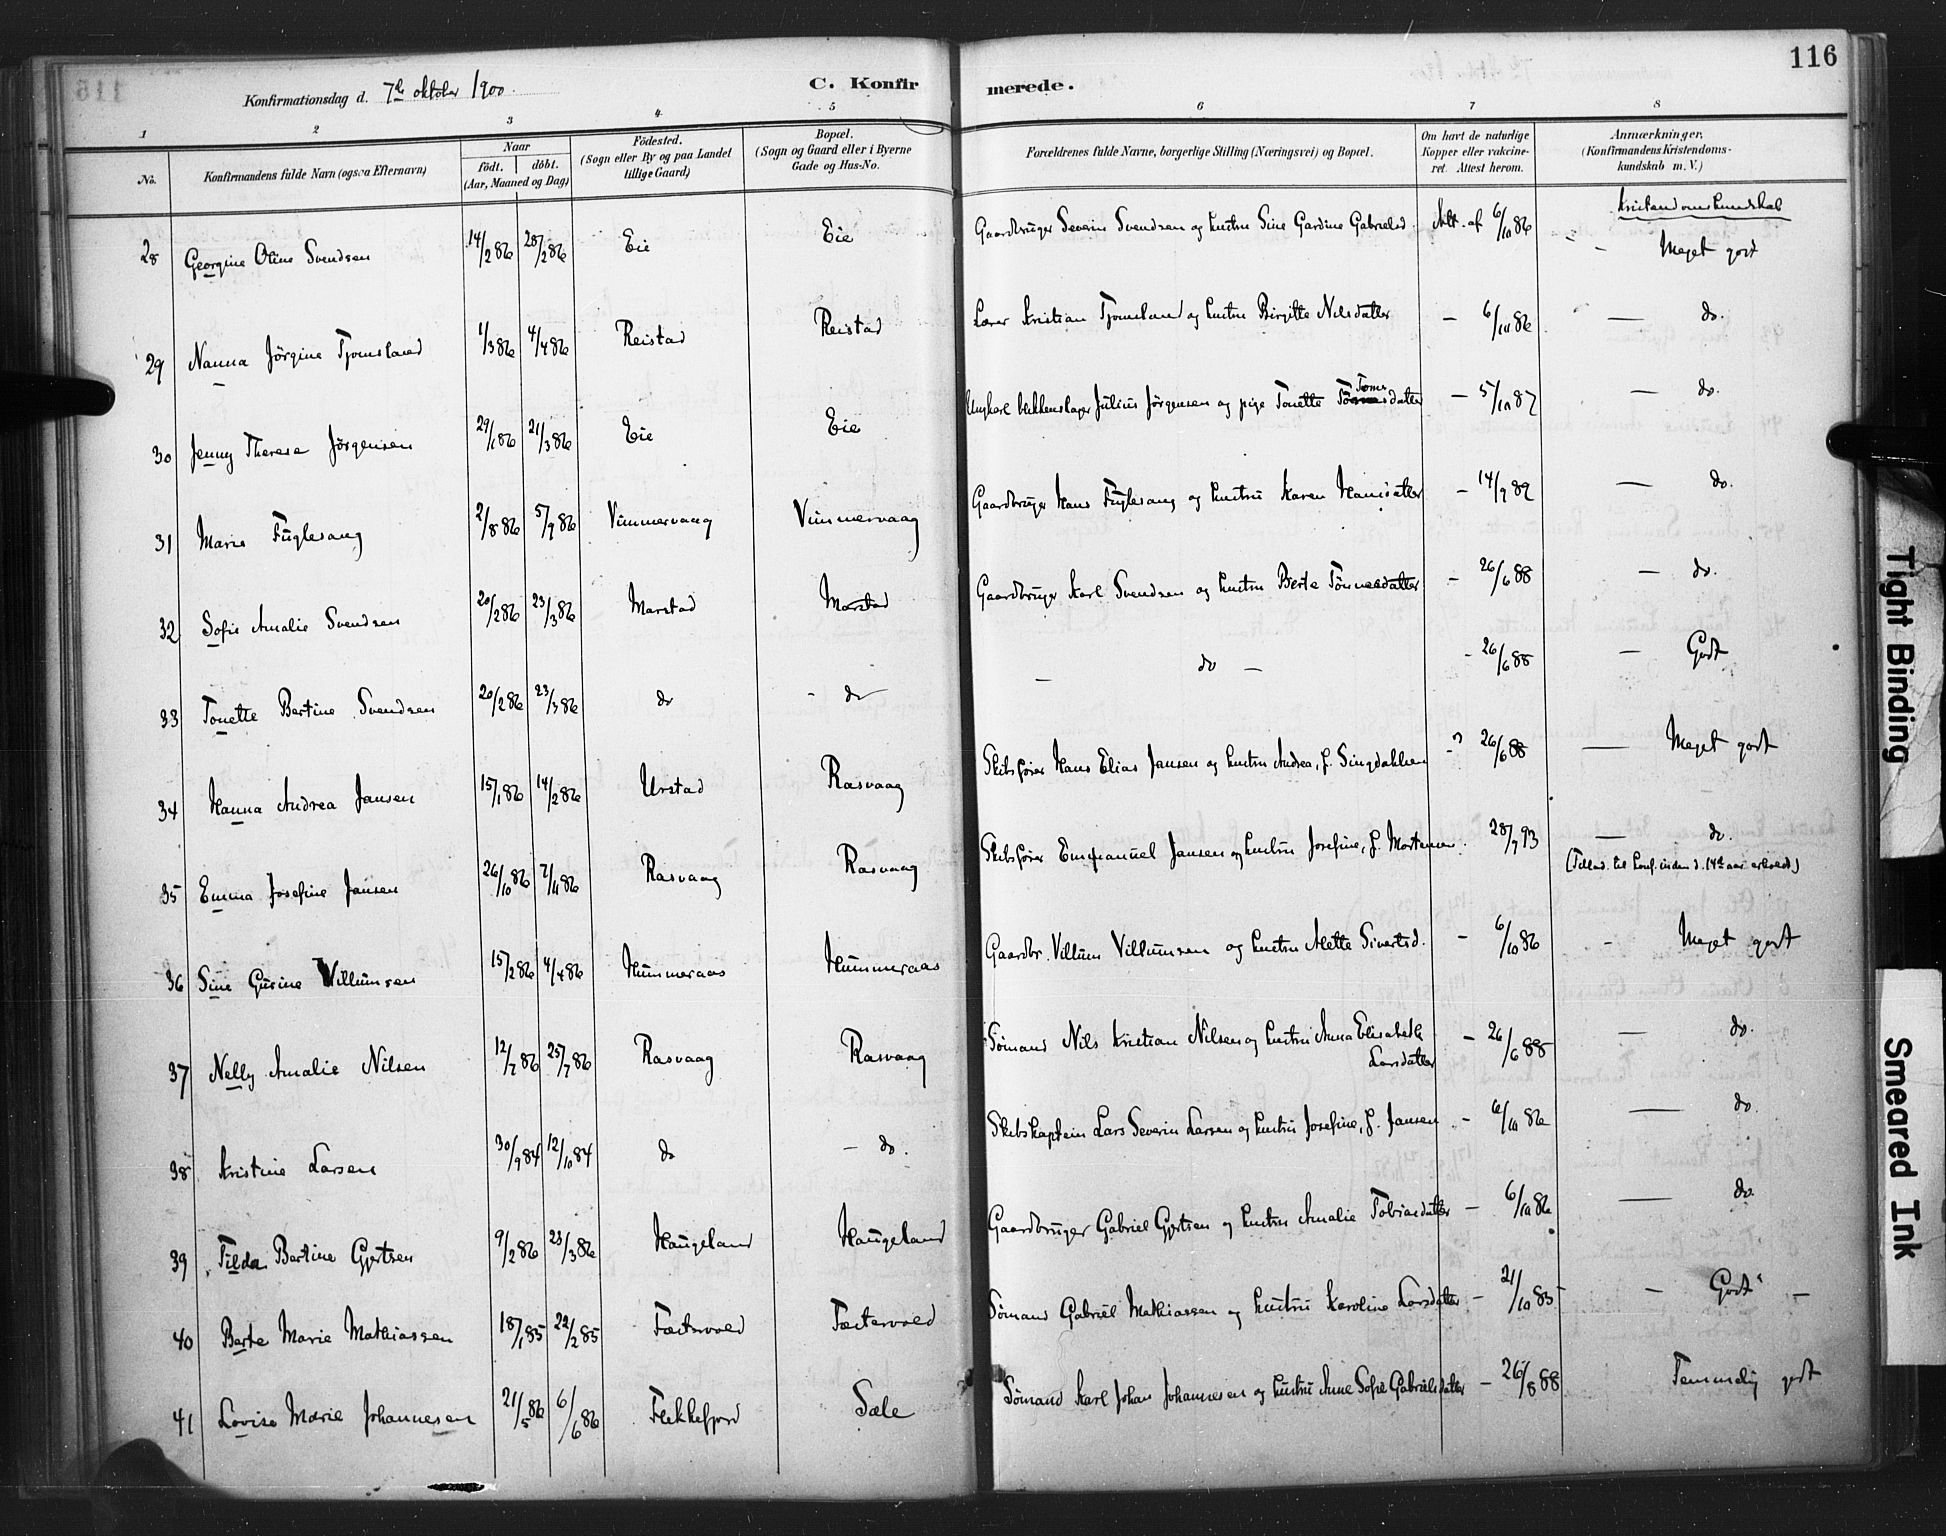 116
Konfirmationsdag d. 7de oktober 1900.
C. Konfirmerede.
1 2 3 4 5 6 7 8
No.
Konfirmandens fulde Navn (ogsaa Efternavn)
Naar
födt. döbt.
(Aar, Maaned og Dag)
Födested.
(Sogn eller By og paa Landet
tillige Gaard)
Bopæl.
(Sogn og Gaard eller i Byerne
Gade og Hus-No.
Forældrenes fulde Navne, borgerlige Stilling (Næringsvei) og Bopæl.
Om havt de naturlige
Kopper eller vakcine-
ret. Attest herom.
Anmærkninger,
(Konfirmandens Kristendoms-
kundskab m. V.)
Kristendomskundskab
28 Georgine Oline Svendsen 14/2 86 28/2 86 Eie Eie Gaardbruger Severin Svendsen og hustru Sine Gardine Gabrielsd. Att. af 6/10 86 " - Meget godt
29 Nanna Jörgine Tjomsland 1/3 86 4/4 86 Reistad Reistad Lærer Kristian Tjomsland og hustru Birgitte Nilsdatter — 6/10 86 — do.
30 Jenny Therese Jörgensen 29/1 86 21/3 86 Eie Eie Ungkarl blikkenslager Julius Jörgensen og pige Tonette Toms datter — 5/10 87 — do.
31 Marie Fuglesang 2/8 86 5/9 86 Vummervaag Vummervaag Gaardbruger Hans Fuglesang og hustru Karen Hansdatter — 14/9 89 — do.
32 Sofie Amalie Svendsen 20/2 86 23/3 86 Marstad Marstad Gaardbruger Karl Svendsen og hustru Berte Tönnesdatter — 26/6 88 — do.
33 Tonette Bertine Svendsen 20/2 86 23/3 86 do - do — do — - 26/6 88 — Godt
34 Hanna Andrea Jansen 15/1 86 14/2 86 Urstad Rasvaag Skibsförer Hans Elias Jansen og hustru Andrea, f. Singdahlsen -? 26/6 88 — Meget godt
35 Emma Josefine Jansen 26/10 86 7/11 86 Rasvaag Rasvaag Skibsförer Emmanuel Jansen og hustru Josefine, f. Mortensen. 28/7 93 — do.
(Tillad. til konf. inden d. 14de aar erholdt)
36 Sine Gurine Villumsen 15/2 86 4/4 86 Hummeraas Hummeraas Gaardbr. Villum Villumsen og hustru Alette Sivertsd. — 6/10 86 - Meget godt
37 Nelly Amalie Nilsen 12/7 86 25/7 86 Rasvaag Rasvaag Sömand Nils Kristian Nilsen og hustru Anna Elisabeth
Larsdatter — 26/6 88 — do.
38 Kristine Larsen 30/9 84 12/10 84 do — do. Skibskaptein Lars Severin Larsen og hustru Josefine, f. Jansen — 6/10 86 — do.
39 Tilda Bertine Gjertsen 9/2 86 23/3 86 Haugeland Haugeland Gaardbruger Gabriel Gjertsen og hustru Amalie Tobiasdatter — 6/10 86 — do.
40 Berte Marie Mathiassen 18/1 85 22/2 85 Fætervold Fætervold Sömand Gabriel Mathiassen og hustru Karoline Larsdatter — 21/10 85 — Godt —
41 Lovise Marie Johannesen 21/5 86 6/6 86 Flekkefjord Sæle Sömand Karl Johan Johannesen og hustru Anne Sofie Gabrielsdatter — 26/8 88 Temmelig godt
Tight Binding
Smeared Ink